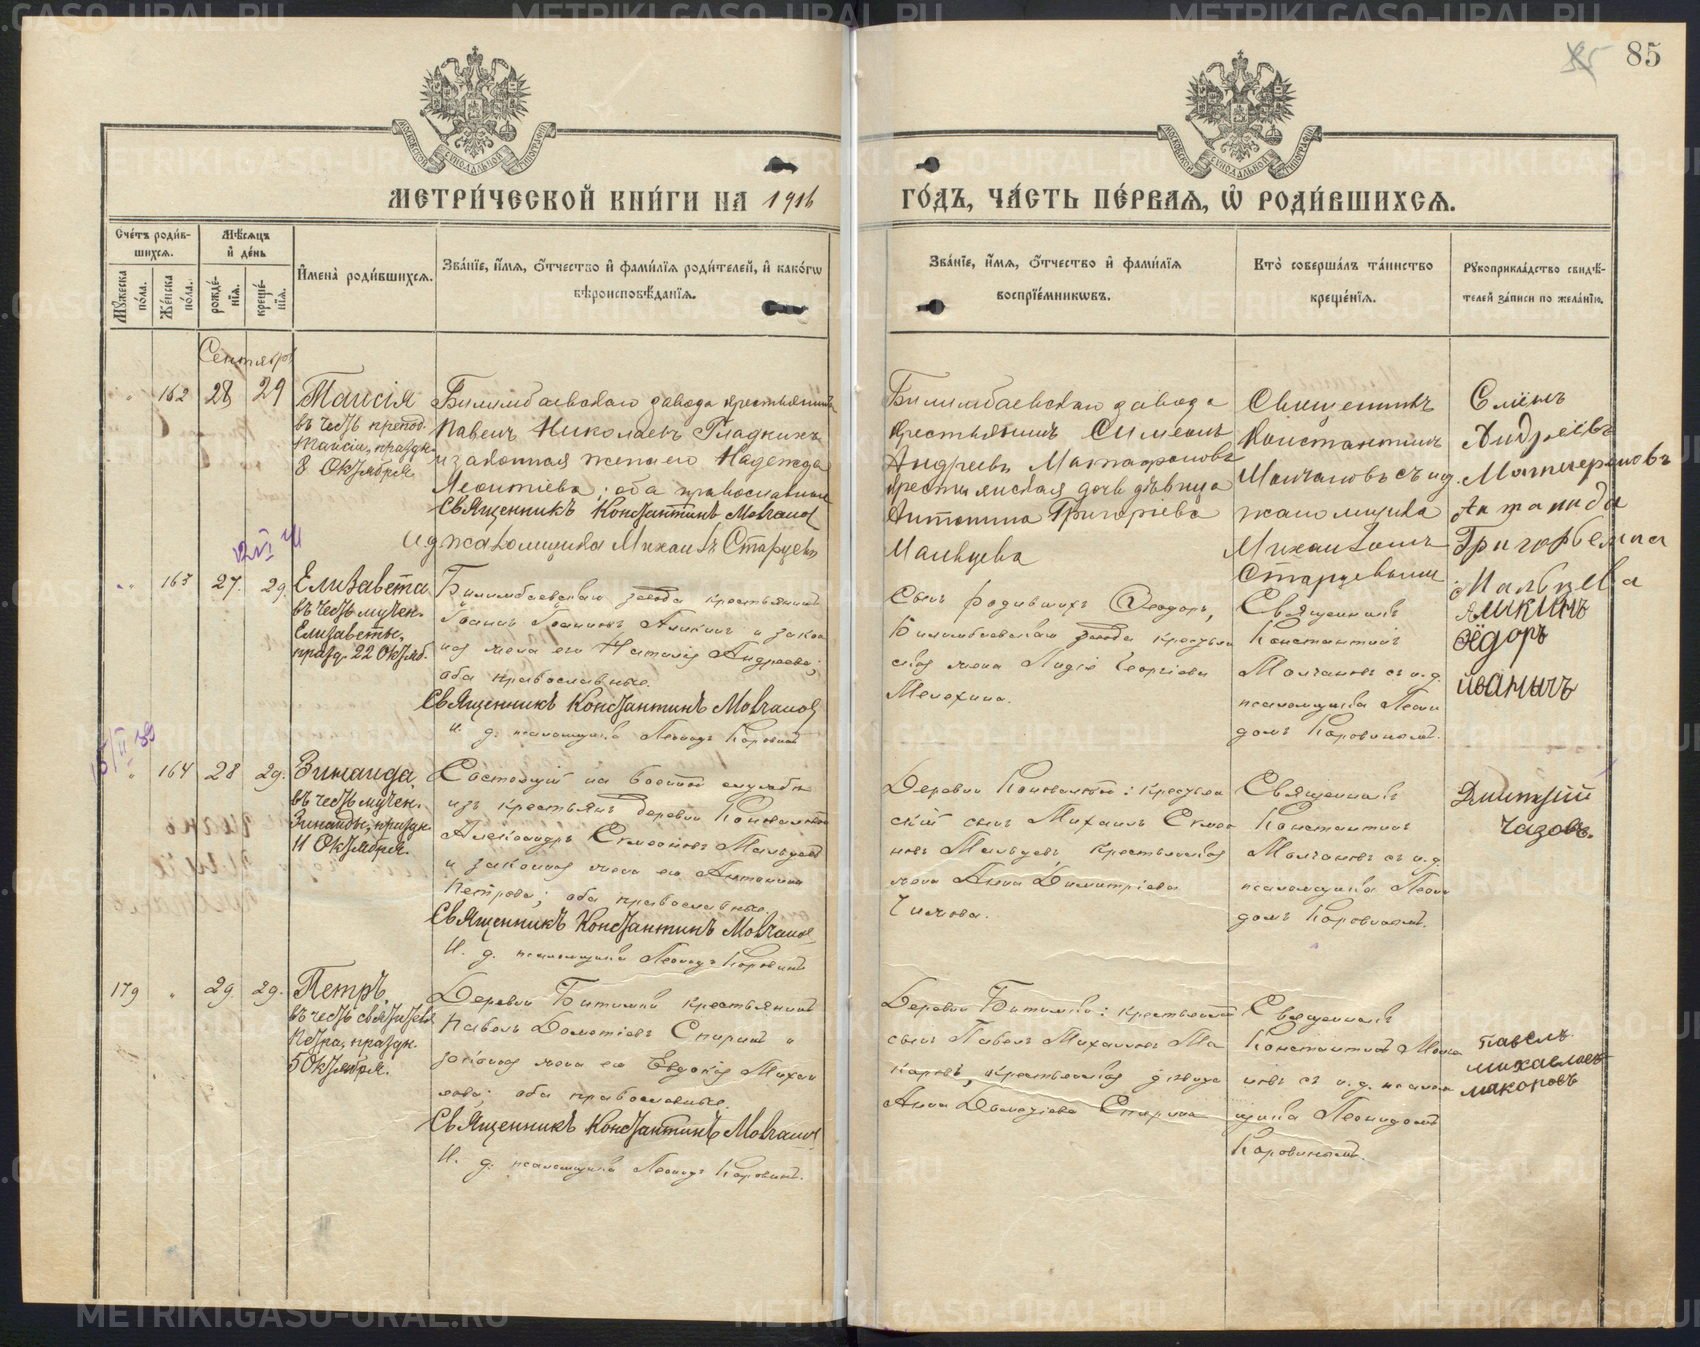 85
МЕТРИ́ЧЕСКОЙ КНИ́ГИ НА 1916
ГО́ДЪ, ЧА́СТЬ ПЕ́РВАЯ, Ѡ РОДИ́ВШИХСЯ.
МОСКОВСКОЙ СѴНОДАЛЬНОЙ ТИПОГРАФІИ
МОСКОВСКОЙ СѴНОДАЛЬНОЙ ТИПОГРАФІИ
Сче́тъ роди́в-
шихся.
Мѣ́сяцъ
и҆ де́нь
Мꙋ́жеска
по́ла.
Же́нска
по́ла.
рожде́-
нїя.
креще́-
нїя.
И҆мена̀ роди́вшихся.
Зва́нїе, и҆́мя, ѻ҆́тчество и҆ фами́лїя роди́телей, и҆ како́гѡ
вѣроисповѣ́данїя.
Зва́нїе, и҆́мя, ѻ҆́тчество и҆ фами́лїя
воспрїе́мникѡвъ.
Кто̀ соверша́лъ та́инство
креще́нїя.
Рꙋкоприкла́дство свидѣ́-
телей за́писи по жела́нїю.
Сентябрь
" 162 28 29
Таисія
въ честь препод.
Таисіи, праздн.
8 Октября.
Билимбаевскаго завода крестьянинъ
Павелъ Николаевъ Гладкихъ
и законная жена его Надежда
Леонтіева; оба православные
Священникъ Константинъ Молчановъ
И.д. псаломщика Михаилъ Старцевъ
Билимбаевскаго завода
крестьянинъ Симеонъ
Андреевъ
крестьянская дочь дѣвица
Антонина Григоріева
Мальцева
Священникъ
Константинъ
Молчановъ съ и.д.
псаломщика
Михаиломъ
Старцевымъ
Семёнъ
Андреевъ
Григорьевна
Мальцева
" 163 27. 29.
Елизавета
въ честь мучен.
Елизаветы,
празд. 22 Октяб.
Билимбаевскаго завода крестьянинъ
Іоаннъ Іоанновъ Аликинъ и закон
ная жена его Наталія Андреева;
оба православные.
Священникъ Константинъ Молчановъ
И. д. псаломщика Леонидъ Коровинъ
Сынъ родившихъ Ѳеодоръ,
Билимбаевскаго завода крестьян
ская жена Лидія Георгіева
Священникъ
Константинъ
Молчановъ съ и.д.
псаломщика Леони
домъ Коровинымъ.
Аликинъ
Фёдоръ
Иванычъ
" 164 28 29.
Зинаида,
въ честь мучен.
Зинаиды, праздн.
11 Октября.
Состоящій на военной службѣ
изъ крестьянъ деревни Коновалова
Александръ Симеоновъ Мальцевъ
и законная жена его Антонина
Петрова; оба православные.
Священникъ Константинъ Молчановъ
И. д. псаломщика Леонидъ Коровинъ
Деревни Коноваловой: крестьян
скій сынъ Михаилъ Симео
новъ Мальцевъ, крестьянская
жена Анна Димитріева
Священникъ
Константинъ
Молчановъ съ и.д.
псаломщика Леони
домъ Коровинымъ.
Дмитрій
Чазовъ.
179 " 29. 29.
Петръ,
въ честь святителя
Петра, праздн.
5 Октября.
Деревни Битимки крестьянинъ
Павелъ Дометіевъ Спиринъ и
законная жена его Евдокія Михаи
лова; оба православные.
Священникъ Константинъ Молчановъ
И. д. псаломщика Леонидъ Коровинъ.
Деревни Битимки: крестьянскій
сынъ Павелъ Михаиловъ Ма
каровъ, крестьянская дѣвица
Анна Дометіева Спирина
Священникъ
Константинъ Молча
новъ съ и.д. псалом
щика Леонидомъ
Коровинымъ.
павелъ
михаиловъ
макоровъ
METRIKI.GASO-URAL.RU